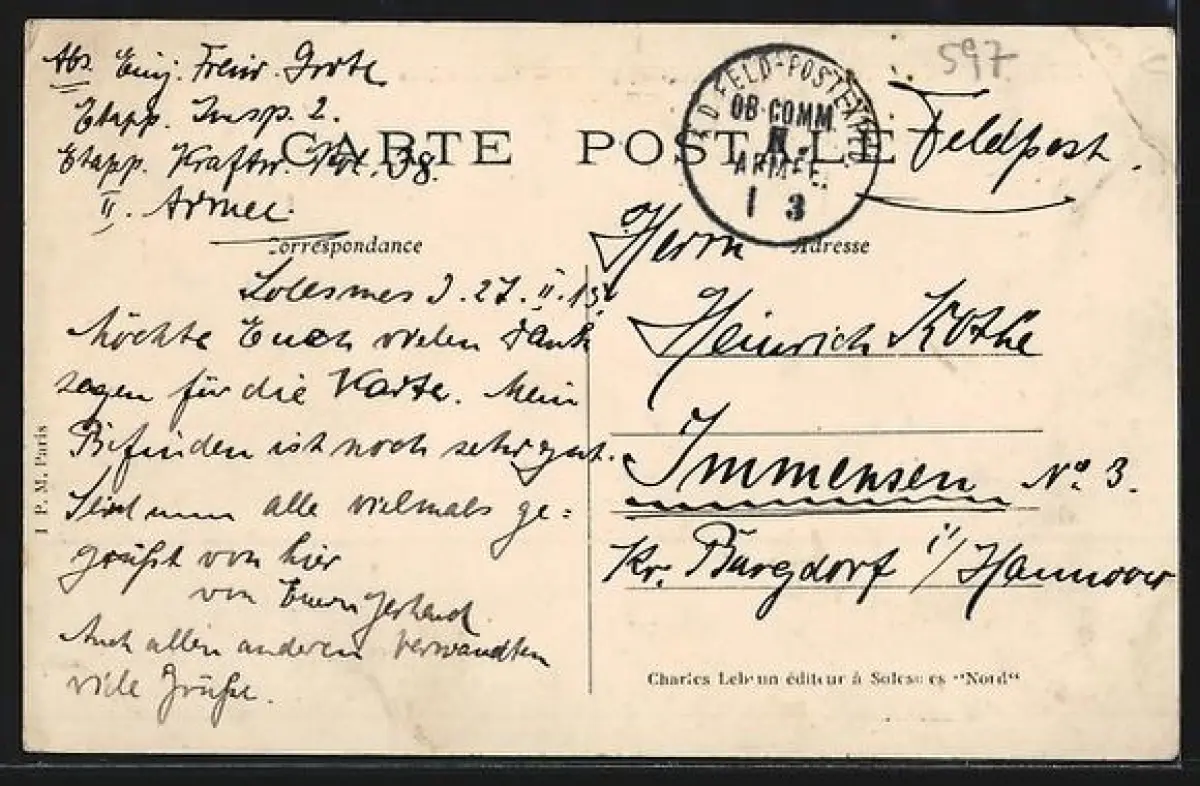 Abs. Einj. Freiw. Grote
Etapp. Insp. 2.
Etapp. Kraftw. Kol. 38.
II. Armee.
CARTE POSTALE
597
K.D. FELD-POSTEXP.
OB-COMM.
II.
ARMEE.
1 3
Feldpost.
Correspondance
Adresse
Solesmes d. 27. II. 15.
Möchte Euch vielen Dank
sagen für die Karte. Mein
Befinden ist noch sehr gut.
Seid nun alle vielmals ge=
grüßt von hier
von Euerm Gerhard.
Auch allen anderen Verwandten
viele Grüße.
Herrn
Heinrich Köthe
Immensen No. 3.
Kr. Burgdorf i/Hannover
I P. M. Paris
Charles Lebrun éditeur à Solesmes "Nord"